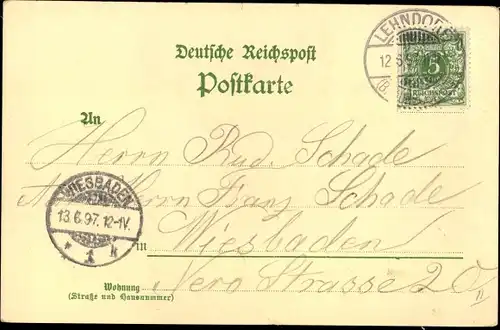 LEHNDORF
12 6 97
(B
5
REICHSPOST
Deutsche Reichspost
Postkarte
An
Herrn Rud. Schade
Herrn Franz Schade
WIESBADEN
13.6.97.12-1V.
* 1 k
in Wiesbaden
Wohnung Nero Strasse 20
(Straße und Hausnummer)